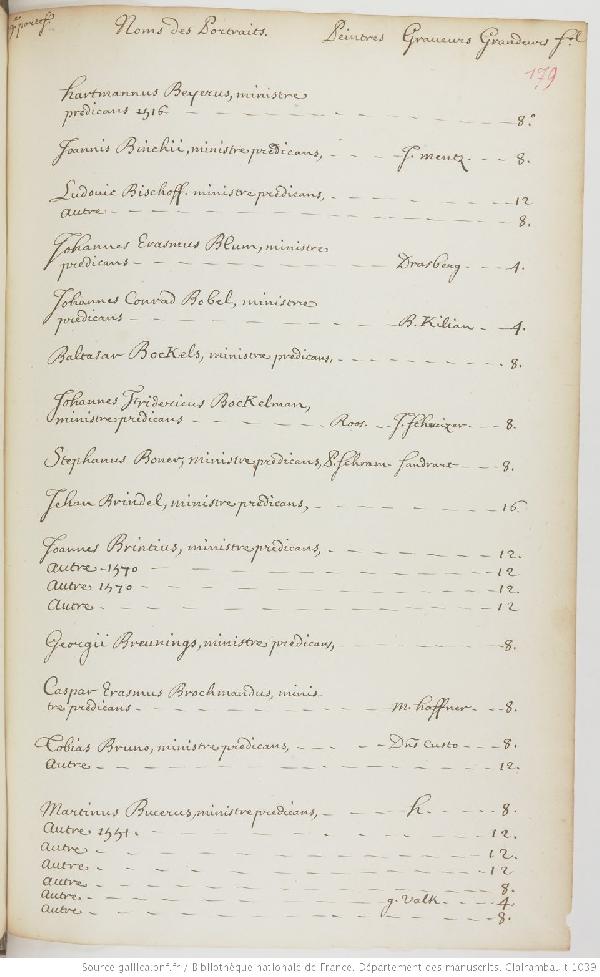 Noms des Portraits. Peintres Graveurs Grandeurs fol
179
hartmannus Beyerus, ministre
predicans 1516 8.°
Joannis Binchii, ministre predicans, J. mentz 8.
Ludovic Bischoff ministre predicans, 12
autre 8.
Johannes Erasmus Blum, ministre
predicans Drasberg 4.
Johannes Conrad Bobel, ministre
predicans B. Kilian 4.
Baltasar Bockels, ministre predicans, 8.
Johannes Fridericus Bockelman,
ministre predicans Roos. J. Schwizer 8.
Stephanus Boner, ministre predicans, P. Schram Sandrart 8.
Jehan Brindel, ministre predicans, 16
Joannes Brintius, ministre predicans, 12.
autre 1570 12
autre 1570 12.
autre 12
Georgii Breunings, ministre predicans, 8.
Caspar Erasmus Brochmandus, minis
tre predicans m. haffner 8.
Tobias Bruno, ministre predicans, Dns Custo 8.
autre 12.
Martinus Bucerus, ministre predicans, h. 8.
autre 1551. 12.
autre 12.
autre 12
autre 8.
autre g. Valk 4.
autre 8.
Source gallica.bnf.fr / Bibliothèque nationale de France. Département des manuscrits. Clairambault 1039